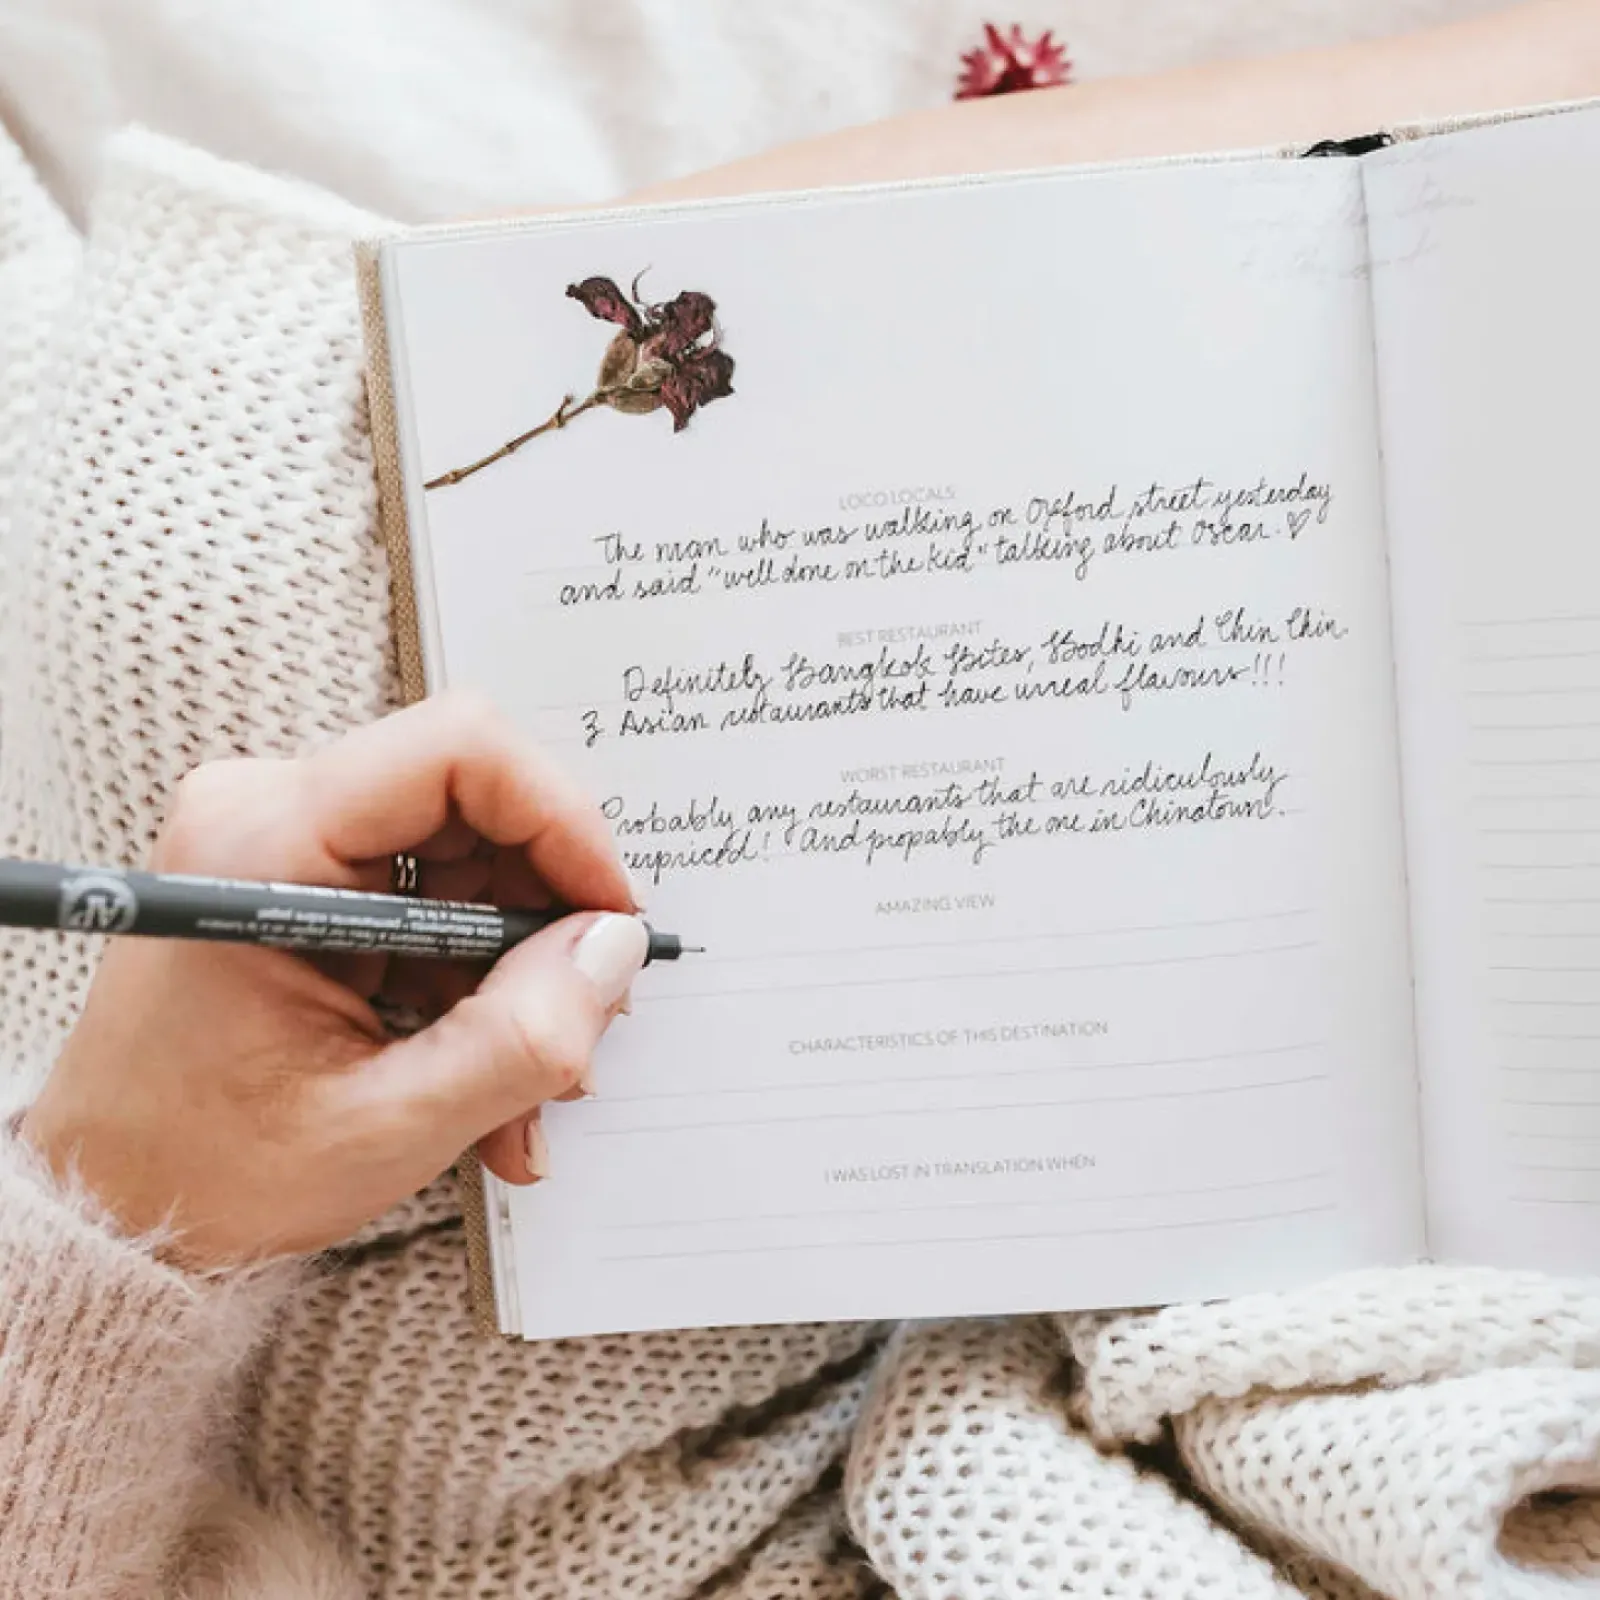 LOCO LOCALS
The man who was walking on Oxford street yesterday
and said "well done on the kid" talking about Oscar. ♡
BEST RESTAURANT
Definitely Bangkok Bites, Bodhi and Chin Chin.
3 Asian restaurants that have unreal flavours!!!
WORST RESTAURANT
Probably any restaurants that are ridiculously
urpriced! And propably the one in Chinatown.
AMAZING VIEW
CHARACTERISTICS OF THIS DESTINATION
I WAS LOST IN TRANSLATION WHEN